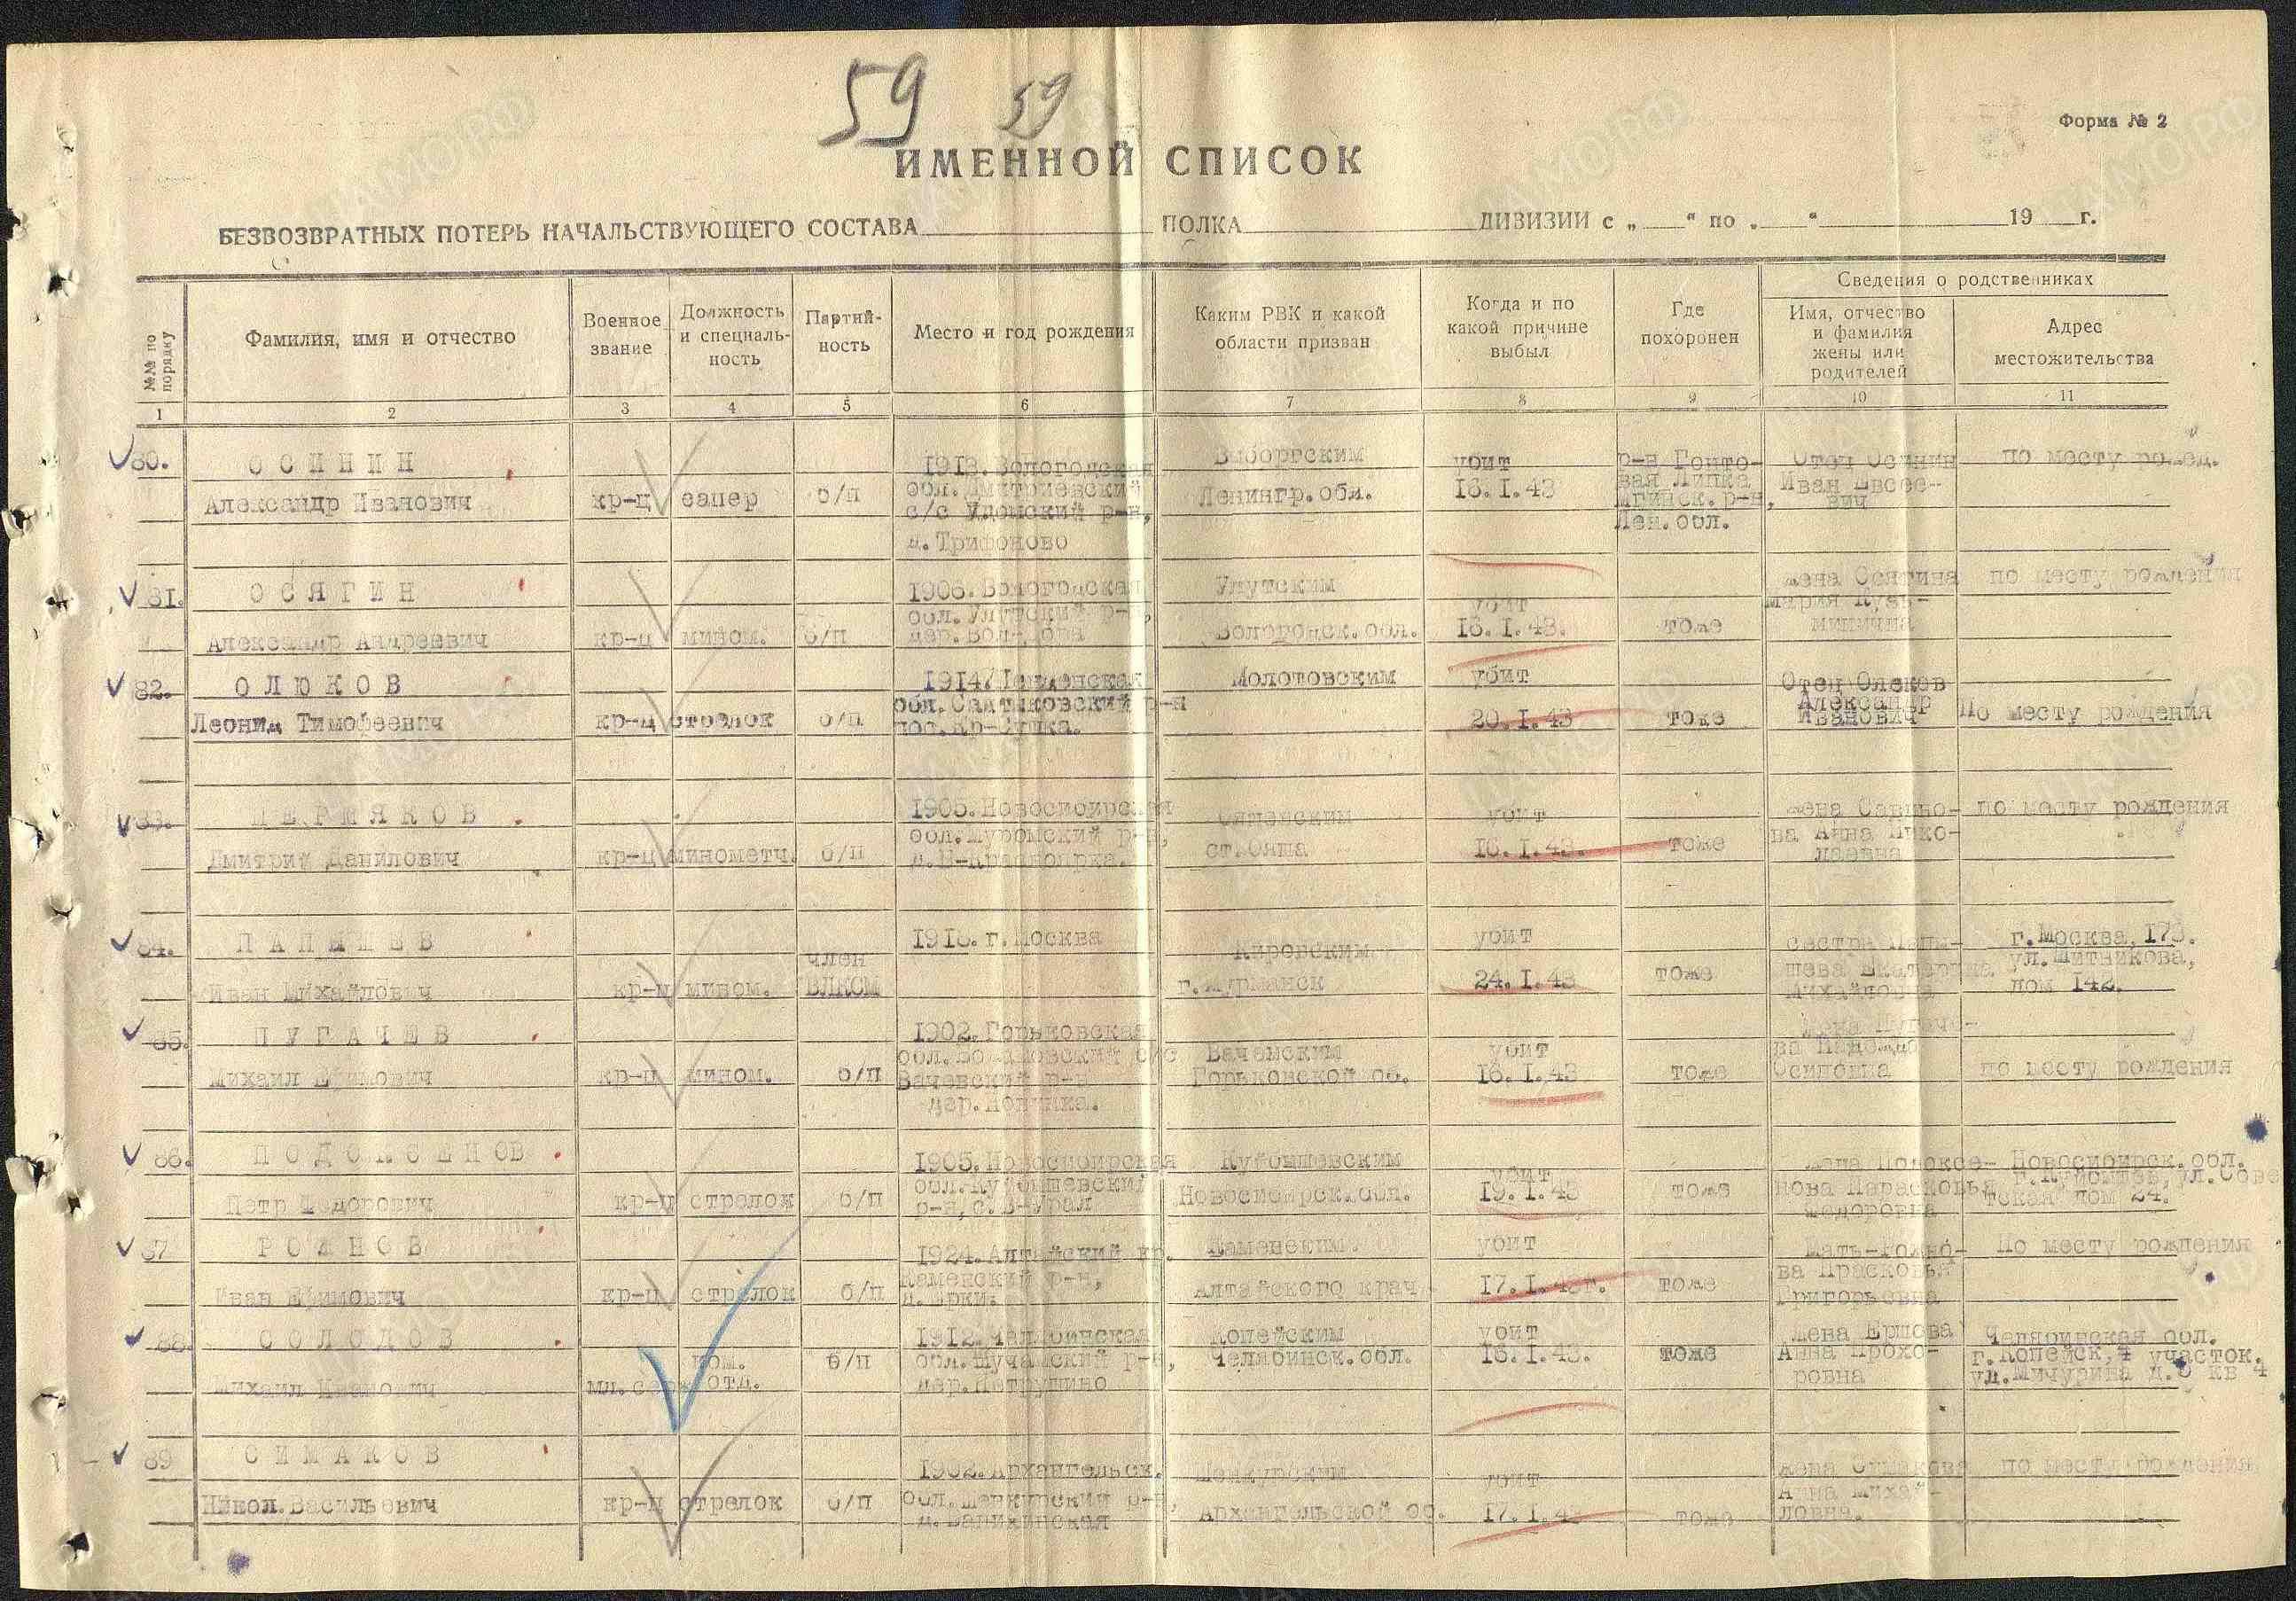 59 59
Форма № 2
ИМЕННОЙ СПИСОК
БЕЗВОЗВРАТНЫХ ПОТЕРЬ НАЧАЛЬСТВУЮЩЕГО СОСТАВА ПОЛКА ДИВИЗИИ с „ “ по „ “ 19 г.
№№ по порядку
Фамилия, имя и отчество
Военное звание
Должность и специальность
Партийность
Место и год рождения
Каким РВК и какой области призван
Когда и по какой причине выбыл
Где похоронен
Сведения о родственниках
Имя, отчество и фамилия жены или родителей
Адрес местожительства
1 2 3 4 5 6 7 8 9 10 11
80. ОСИНИН 1913. Вологодская Выборгским убит р-н Гонто- Отец Осинин по месту рожд.
Александр Иванович кр-ц сапер б/п обл. Дмитриевский Ленингр. обл. 16.I.43 вая Липка Иван Евсее-
с/с Уломский р-н, Мгинск. р-н, вич
д. Трифоново Лен. обл.
81. ОСЯГИН 1906. Вологодская жена Осягина по месту рождения
обл. р-н, убит Мария Кузь-
Александр Андреевич кр-ц мином. б/п дер. Вологодск. обл. 16.I.43. тоже минична
82. ОЛЮКОВ 1914 Молотовским убит Отец
обл. Салтыковский р-н Александр
Леонид Тимофеевич кр-ц стрелок б/п пос. 20.I.43 тоже Иванович По месту рождения
83. ПЕРМЯКОВ 1905. Новосибирская убит жена Савино- по месту рождения
обл. р-н, ва Анна Нико-
Дмитрий Данилович кр-ц минометч. б/п ст. Ояша 16.I.43. тоже лаевна
84. ПАНЫШЕВ 1918. г. Москва Кировским убит сестра Паны- г. Москва, 173.
член шева Екатерина ул. Шитникова,
Иван Михайлович кр-ц мином. ВЛКСМ г. Мурманск 24.I.43 тоже Михайловна дом 142.
85. ПУГАЧЕВ 1902. Горьковская жена Пугаче-
обл. с/с Вачевским убит ва
Михаил Ефимович кр-ц мином. б/п Вачевский р-н Горьковской об. 16.I.43 тоже Осиповна по месту рождения
дер.
86. ПОДОКСЕНОВ 1905. Новосибирская Куйбышевским жена Подоксе- Новосибирск. обл.
обл. Куйбышевский убит нова Парасковья г. Куйбышев, ул. Сове
Петр Федорович кр-ц стрелок б/п р-н, с. Новосибирск. обл. 19.I.43 тоже Федоровна тская дом 24.
87 РОЖНОВ 1924. Алтайский кр. Каменским. убит Мать-Рожно- По месту рождения
Каменский р-н, ва Прасковья
Иван Ефимович кр-ц стрелок б/п д. Алтайского края 17.I.43г. тоже Григорьевна
88. СОЛОДОВ 1912. Челябинская Копейским убит жена Ершова Челябинская обл.
ком. б/п обл. р-н, Челябинск. обл. 16.I.43. тоже Анна Прохо- г. Копейск, 4 участок.
Михаил Иванович мл. серж отд. дер. Петрушино ровна ул. Мичурина д. 3 кв 4
89 СИМАКОВ 1902. Архангельск. Шенкурским убит жена Симакова по месту рождения
обл. Шенкурский р-н, Анна Михай-
Никол. Васильевич кр-ц стрелок б/п д. Архангельской об. 17.I.43 тоже ловна.